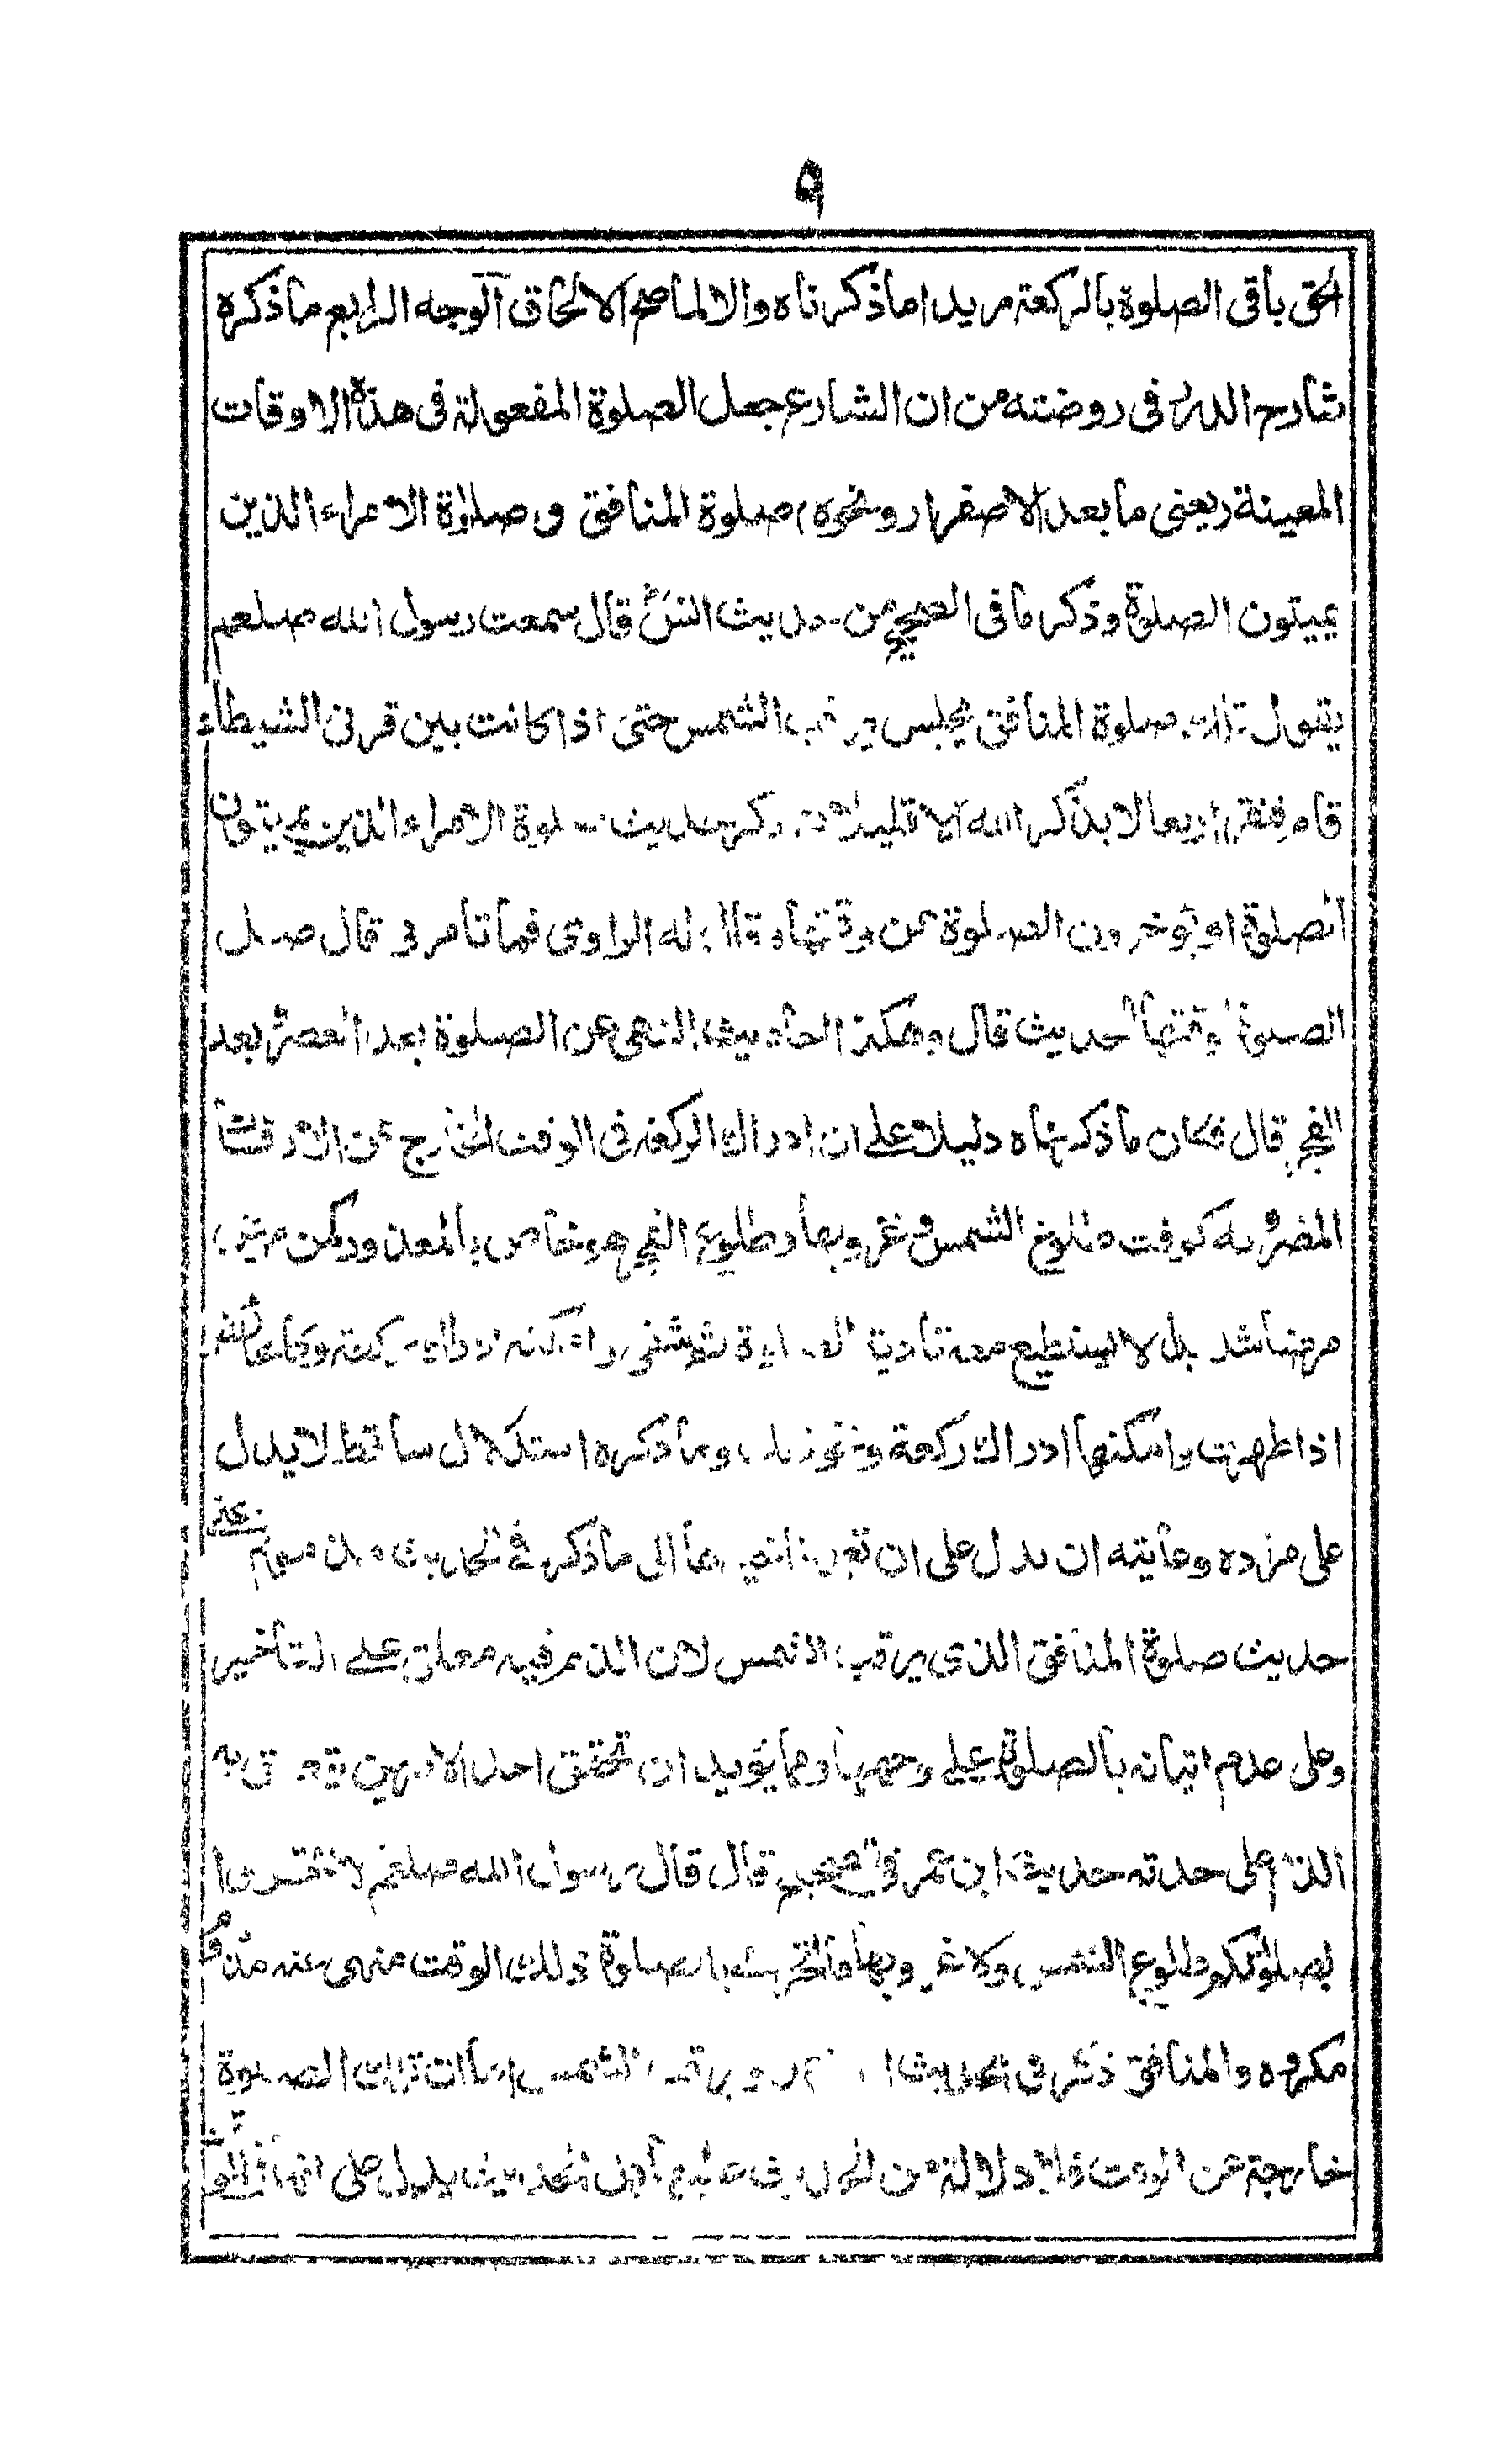 ٩
الحق باقي الصلوة بالركعة مريدا ما ذكرناه والا لما صح الالحاق الوجه الرابع ما ذكره
شارح الدرر في روضته من ان الشارع جعل الصلوة المفعولة في هذه الاوقات
المعينة (يعني ما بعد الاصفرار ونحوه) صلوة المنافق وصلوة الامراء الذين
يميتون الصلوة وذكر ما في الصحيح من حديث انس قال سمعت رسول الله صلعم
يقول تلك صلوة المنافق يجلس يرقب الشمس حتى اذا كانت بين قرني الشيطان
قام فنقر اربعا لا يذكر الله الا قليلا وذكر حديث صلوة الامراء الذين يميتون
الصلوة او يؤخرون الصلوة عن وقتها وقال له الراوي فما تأمرني قال صل
الصلوة لوقتها الحديث قال وهكذا احاديث النهي عن الصلوة بعد العصر وبعد
الفجر قال فكان ما ذكرناه دليلا على ان ادراك الركعة في الوقت الخارج عن الاوقات
المضروبة كوقت طلوع الشمس وغروبها وطلوع الفجر هو خاص بالمعذور كمن مرض
مرضا شديدا لا يستطيع معه تأدية الصلوة ثم شفي وامكنه ادراك ركعة وكالحائض
اذا طهرت وامكنها ادراك ركعة ونحوذلك، وما ذكره استدلال ساقط لا يدل
على مراده وغايته ان يدل على ان ما ذكر في الحديث
حديث صلوة المنافق الذي يرقب الشمس لان الذم فيه معلق على التأخير
وعلى عدم اتيانه بالصلوة على وجهها ومما يؤيد ان تحقق احد الامرين به
الذم على حدته حديث ابن عمر في الصحيح قال قال رسول الله صلعم لا تتحروا
بصلوتكم طلوع الشمس ولا غروبها فالتحري بالصلوة ذلك الوقت منهي عنه
مكروه والمنافق ذكر في الحديث الشمس ترك الصلوة
خارجة عن الوقت فلا دلالة من الحديث يدل على انها